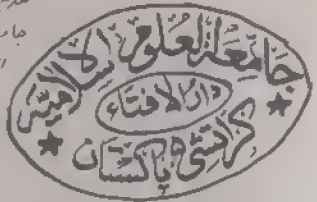 جامعة العلوم الاسلامية
دار الافتاء
كراتشي باكستان